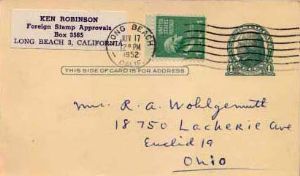 KEN ROBINSON
Foreign Stamp Approvals
Box 3565
LONG BEACH 3, CALIFORNIA
LONG BEACH
JUN 17
PM
1952
CALIF.
THIS SIDE OF CARD IS FOR ADDRESS
Mr. R. A. Wohlgemutt
18750 Lacherie Ave
Euclid 19
Ohio